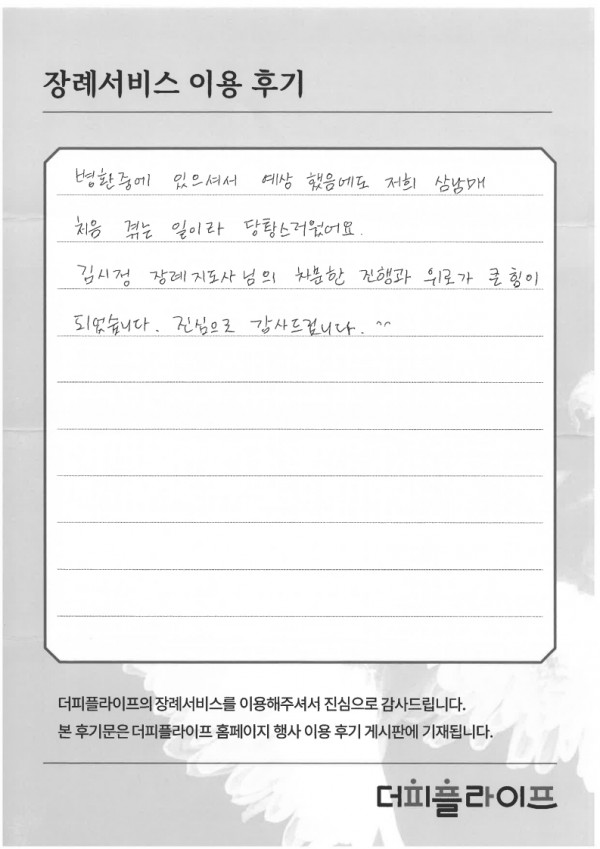 장례서비스 이용 후기
병환중에 있으셔서 예상 했음에도 저희 삼남매
처음 겪는 일이라 당황스러웠어요.
김시정 장례지도사님의 차분한 진행과 위로가 큰힘이
되었습니다. 진심으로 감사드립니다. ^^
더피플라이프의 장례서비스를 이용해주셔서 진심으로 감사드립니다.
본 후기문은 더피플라이프 홈페이지 행사 이용 후기 게시판에 기재됩니다.
더피플라이프